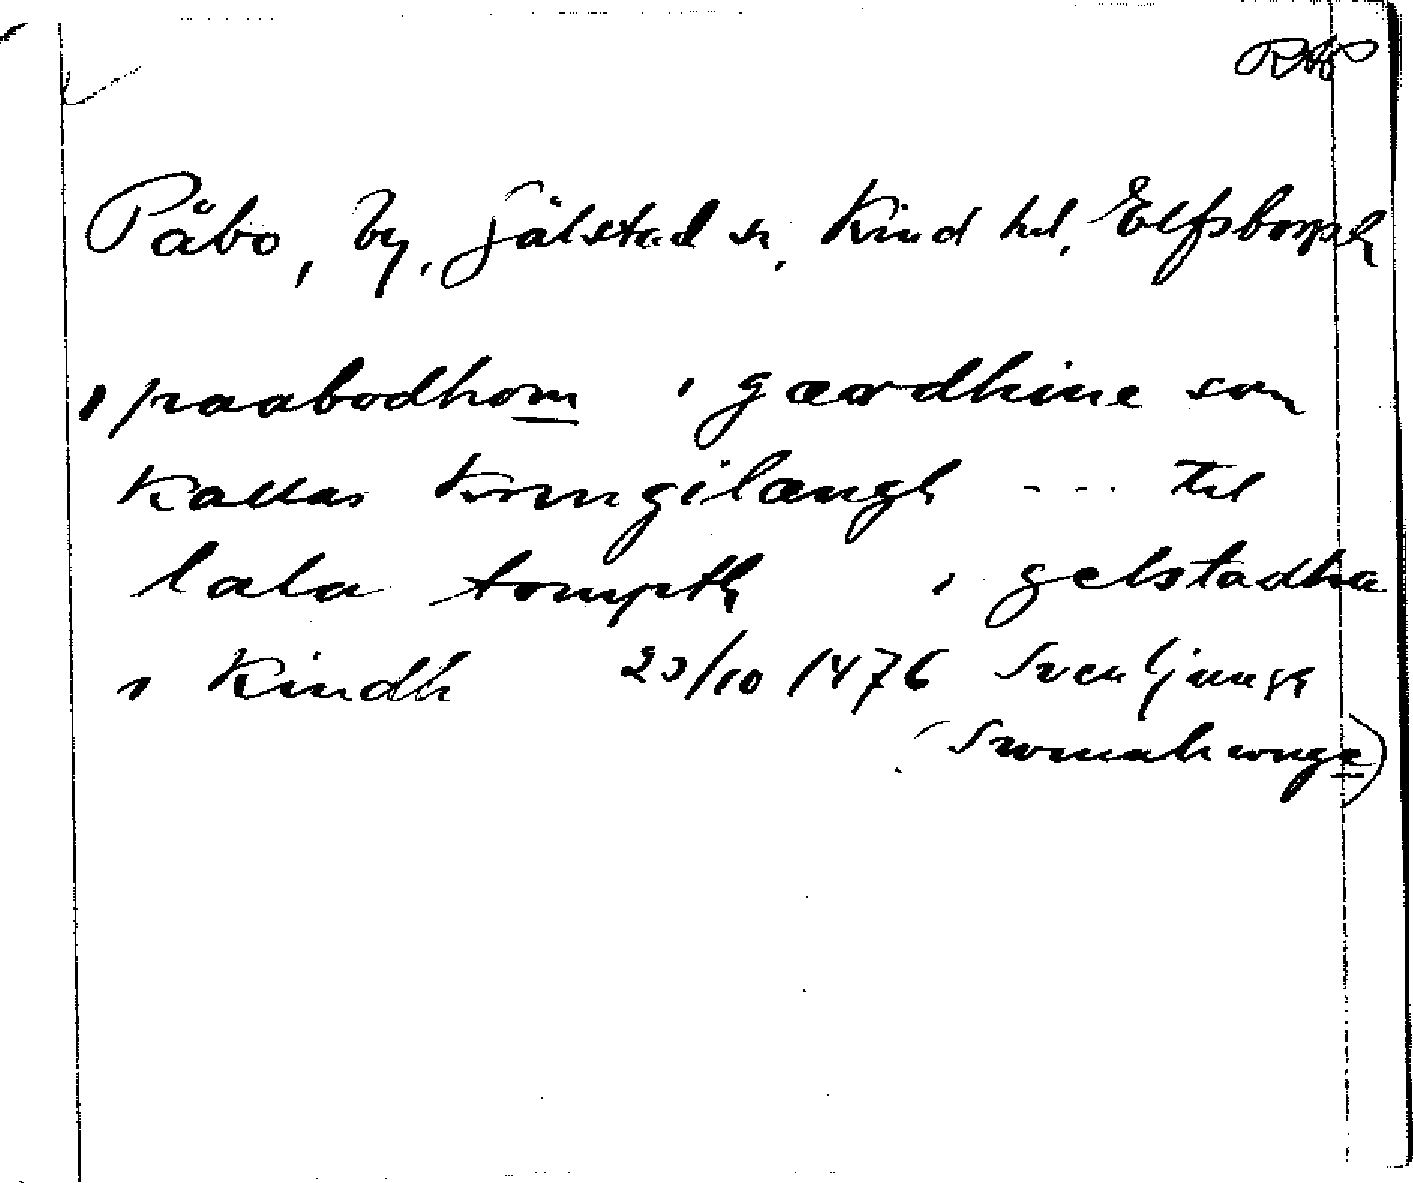 RAP
Påbo, by, Jälstad sn, Kind hd, Elfsborgs l
i paabodhom i gærdhine som
kallas krongilængh --- til
lala tompth i gelstadha
i Kindh 23/10 1476 Svenljunga